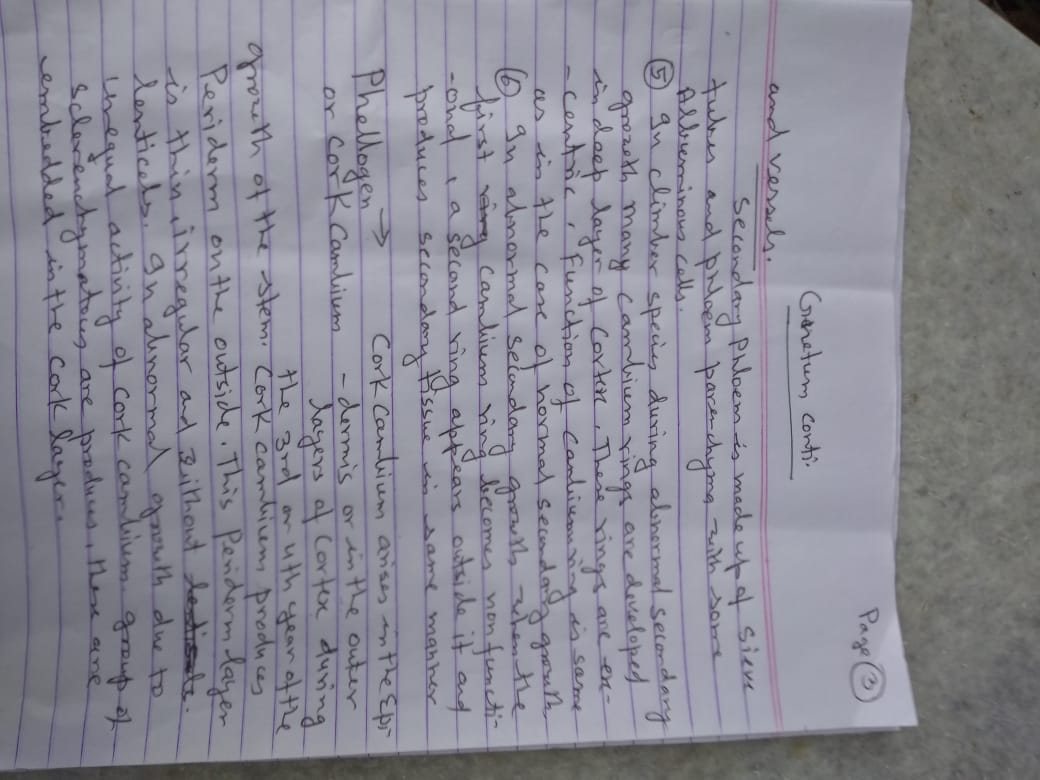 Page 3
Gnetum conti.
and vessels.
Secondary Phloem is made up of Sieve
tubes and phloem parenchyma with some
Albuminous cells.
5 In climber species during abnormal secondary
growth many cambium rings are developed
in deep layer of cortex. These rings are ex-
-centric. Function of cambium ring is same
as in the case of normal secondary growth
6 In abnormal secondary growth when the
first ring cambium ring becomes non functi-
-onal, a second ring appears outside it and
produces secondary tissue in same manner
Phellogen → Cork cambium arises in the Epi-
or Cork Cambium - dermis or in the outer
layers of cortex during
the 3rd or 4th year of the
growth of the stem. Cork cambium produces
Periderm on the outside. This Periderm layer
is thin, irregular and without
lenticels. In abnormal growth due to
unequal activity of cork cambium group of
sclerenchymatous are produces, these are
embedded in the cork layer.